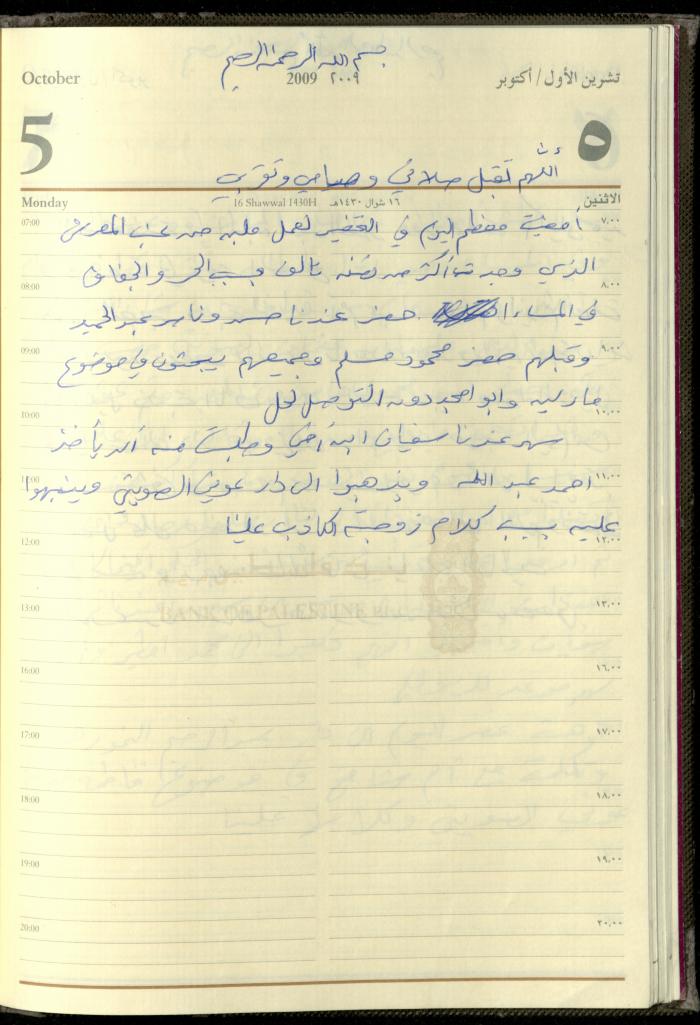 بسم الله الرحمن الرحيم
October 2009 ٢٠٠٩ تشرين الأول/أكتوبر
5 ٥
اللهم تقبل صلاتي وصيامي وتقربي
Monday 16 Shawwal 1430H ١٦ شوال ١٤٣٠هـ الاثنين
07:00 أمضيت معظم اليوم في القفير لعمل ملبن من عنب المعرش ٧,٠٠
الذي وجدت أكثر من نصفه تالف بسبب الحر والجفاف
08:00 ٨,٠٠
في المساء حضر عندنا حسن وناصر عبد الحميد
09:00 وقبلهم حضر محمود مسلم وجميعهم يبحثون في موضوع ٩,٠٠
وابو امجد دون التوصل لحل
10:00 ١٠,٠٠
سهر عندنا سفيان ابن أخي وطلبت منه أن يأخذ
11:00 احمد عبد الله ويذهبوا الى دار عوني الصويتي وينبهوا ١١,٠٠
عليه بسبب كلام زوجته الكاذب علينا
12:00 ١٢,٠٠
BANK OF PALESTINE
13:00 ١٣,٠٠
16:00 ١٦,٠٠
17:00 ١٧,٠٠
18:00 ١٨,٠٠
19:00 ١٩,٠٠
20:00 ٢٠,٠٠